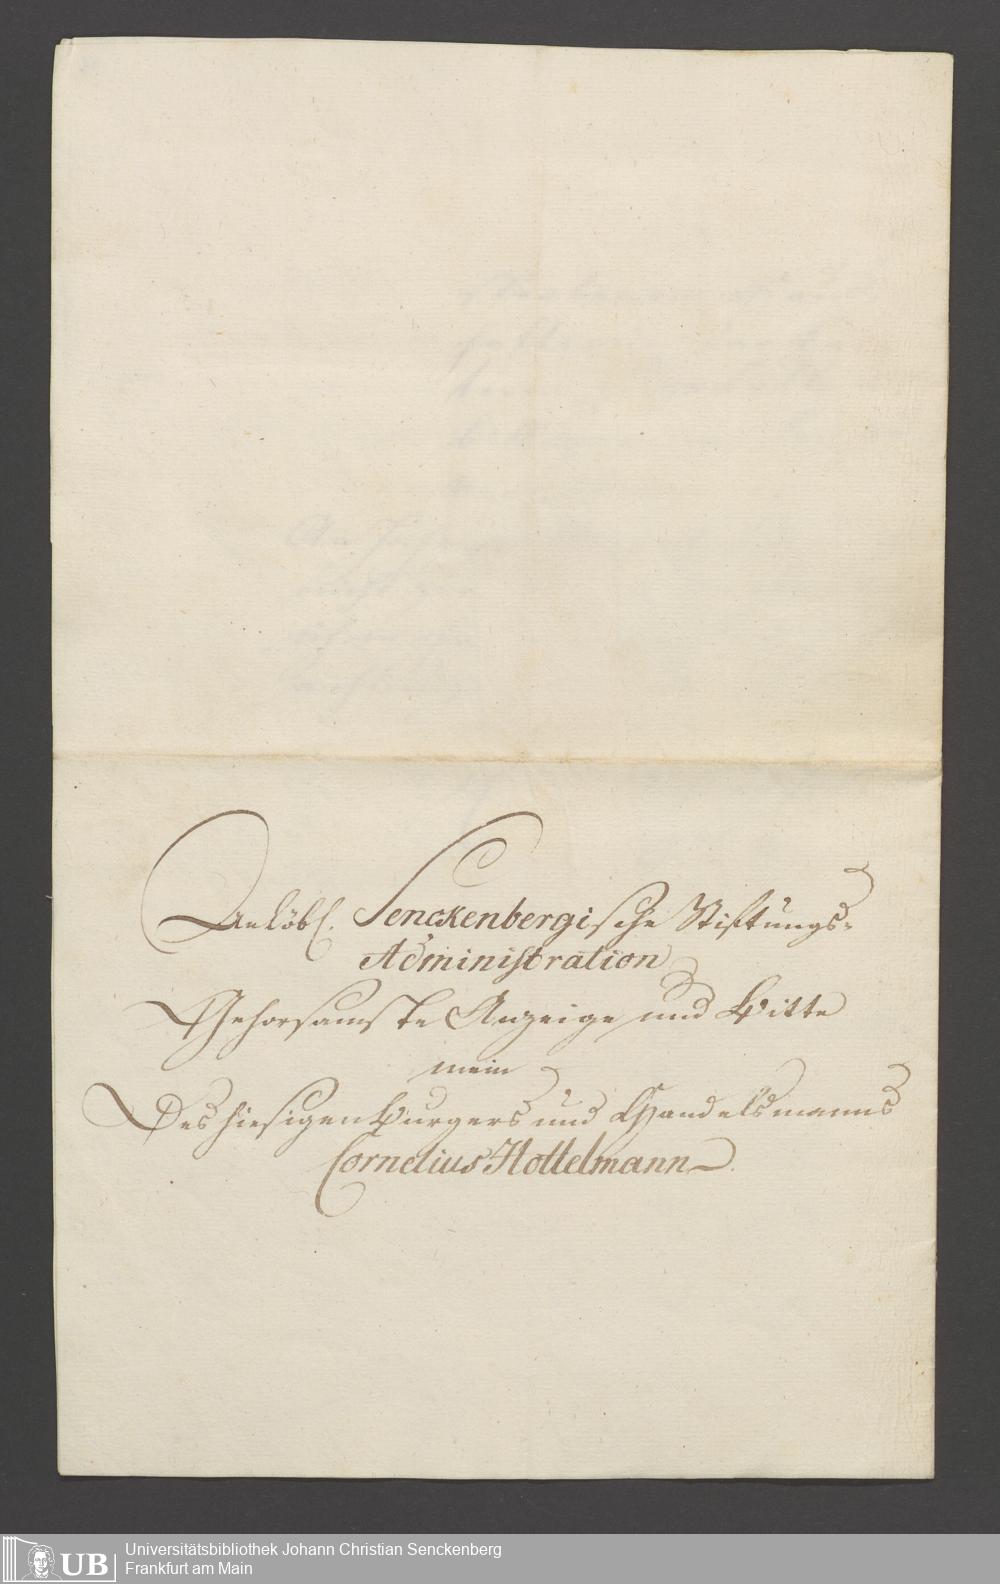 An Löbl. Senckenbergische Stiftungs-
Administration
Gehorsamste Anzeige und Bitte
mein
Des hiesigen Burgers und Handelsmanns
Cornelius Hottelmann
UB
Universitätsbibliothek Johann Christian Senckenberg
Frankfurt am Main